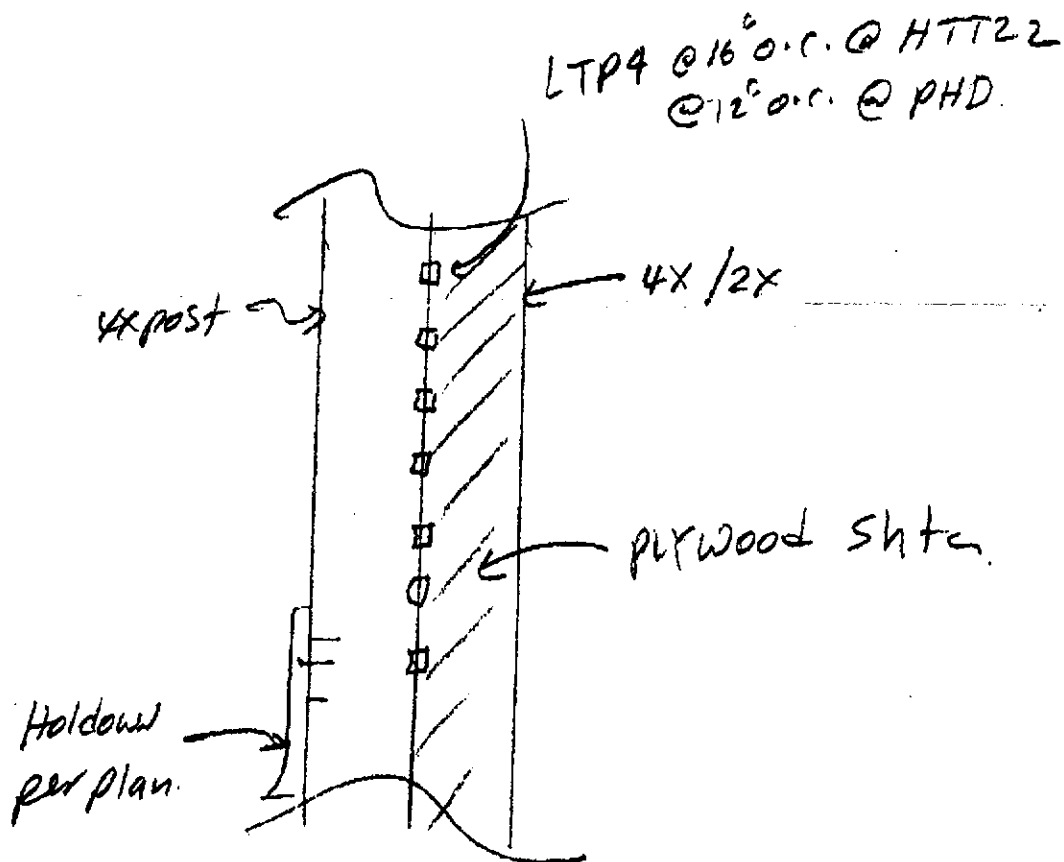 LTP4 @16" o.c. @ HTT22
@12" o.c. @ PHD.
4x post
4X /2X
plywood shtg.
Holdown
per plan.